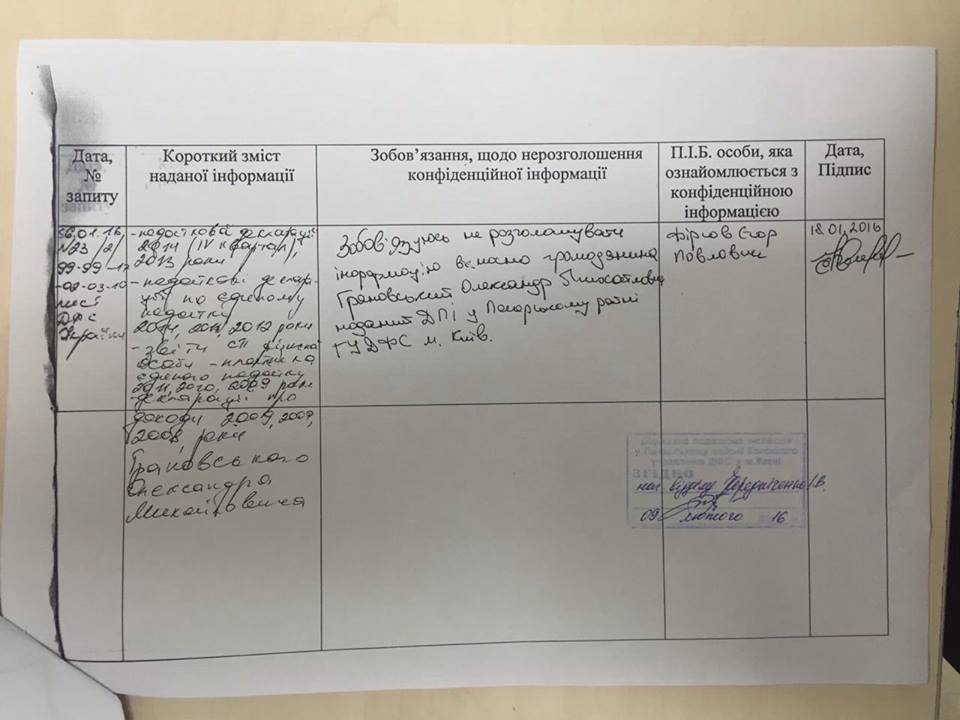 Дата,
№
запиту
Короткий зміст
наданої інформації
Зобов’язання, щодо нерозголошення
конфіденційної інформації
П.І.Б. особи, яка
ознайомлюється з
конфіденційною
інформацією
Дата,
Підпис
06.01.16
N23/2/
99-99-17
-02-03-10
лист
ДФС
України
-податкова декларації
2014 (IV квартал),
2013 роки
-податкові декла-
рації по єдиному
податку
2011, 2012 роки
-звіти СП фізичної
особи - платника
єдиного податку
2011, 2010, 2009 роки
-декларації про
доходи 2009, 2007,
2008, роки
Грановського
Олександра
Михайловича
Зобов'язуюсь не розголошувати
інформацію відносно громадянина
Грановський Олександр Михайлович
наданий ДПІ у Печерському районі
ГУДФС м. Київ.
Фірсов Єгор
Павлович
18.01.2016
Державна податкова інспекція
у Печерському районі Головного
управління ДФС у м.Києві
ЗГІДНО
нач. відділу Чередніченко І.В.
09 лютого 2016